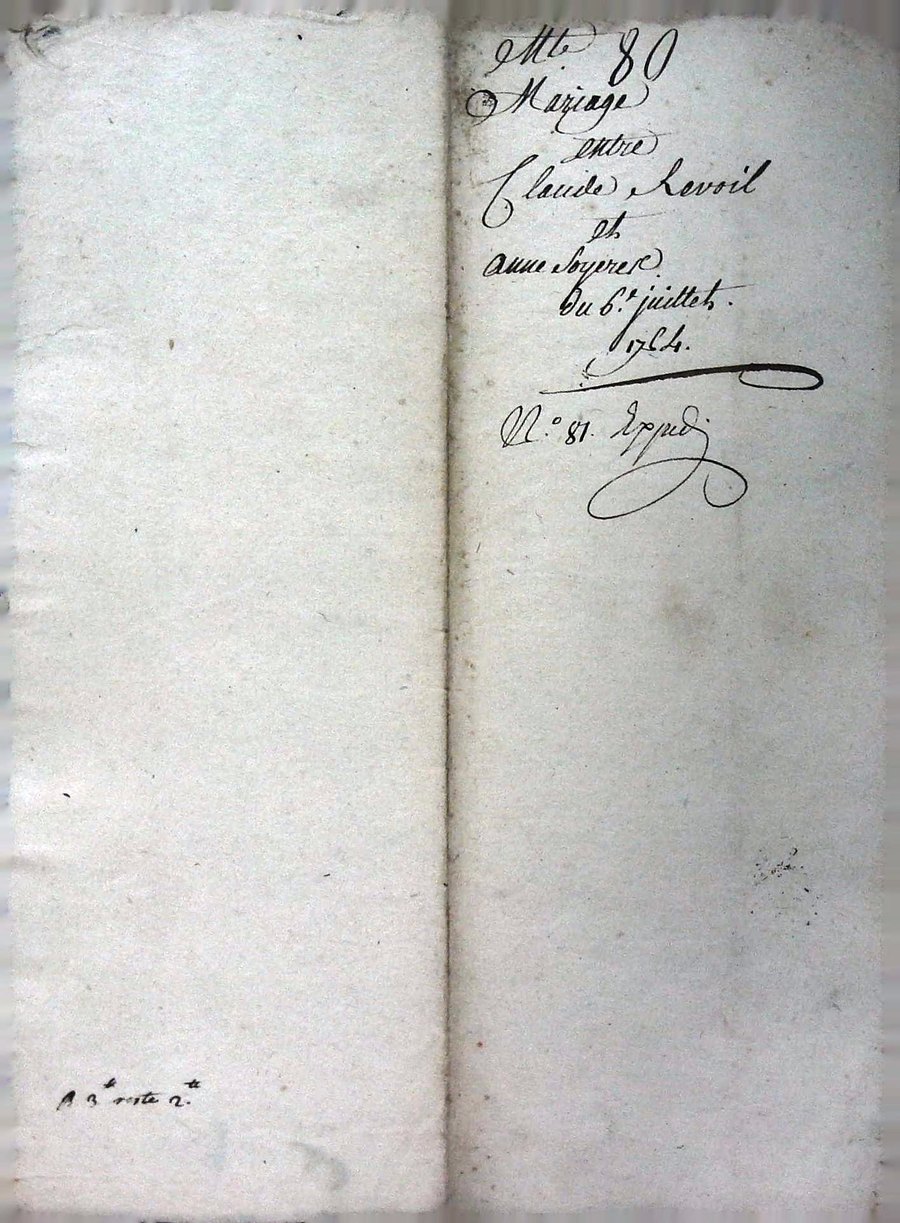 Mte 80
Mariage
entre
Claude Revoil
et
anne Soyere
du 6.e juillet.
1764.
N.o 81. Expedi
R 3tt reste 2.tt